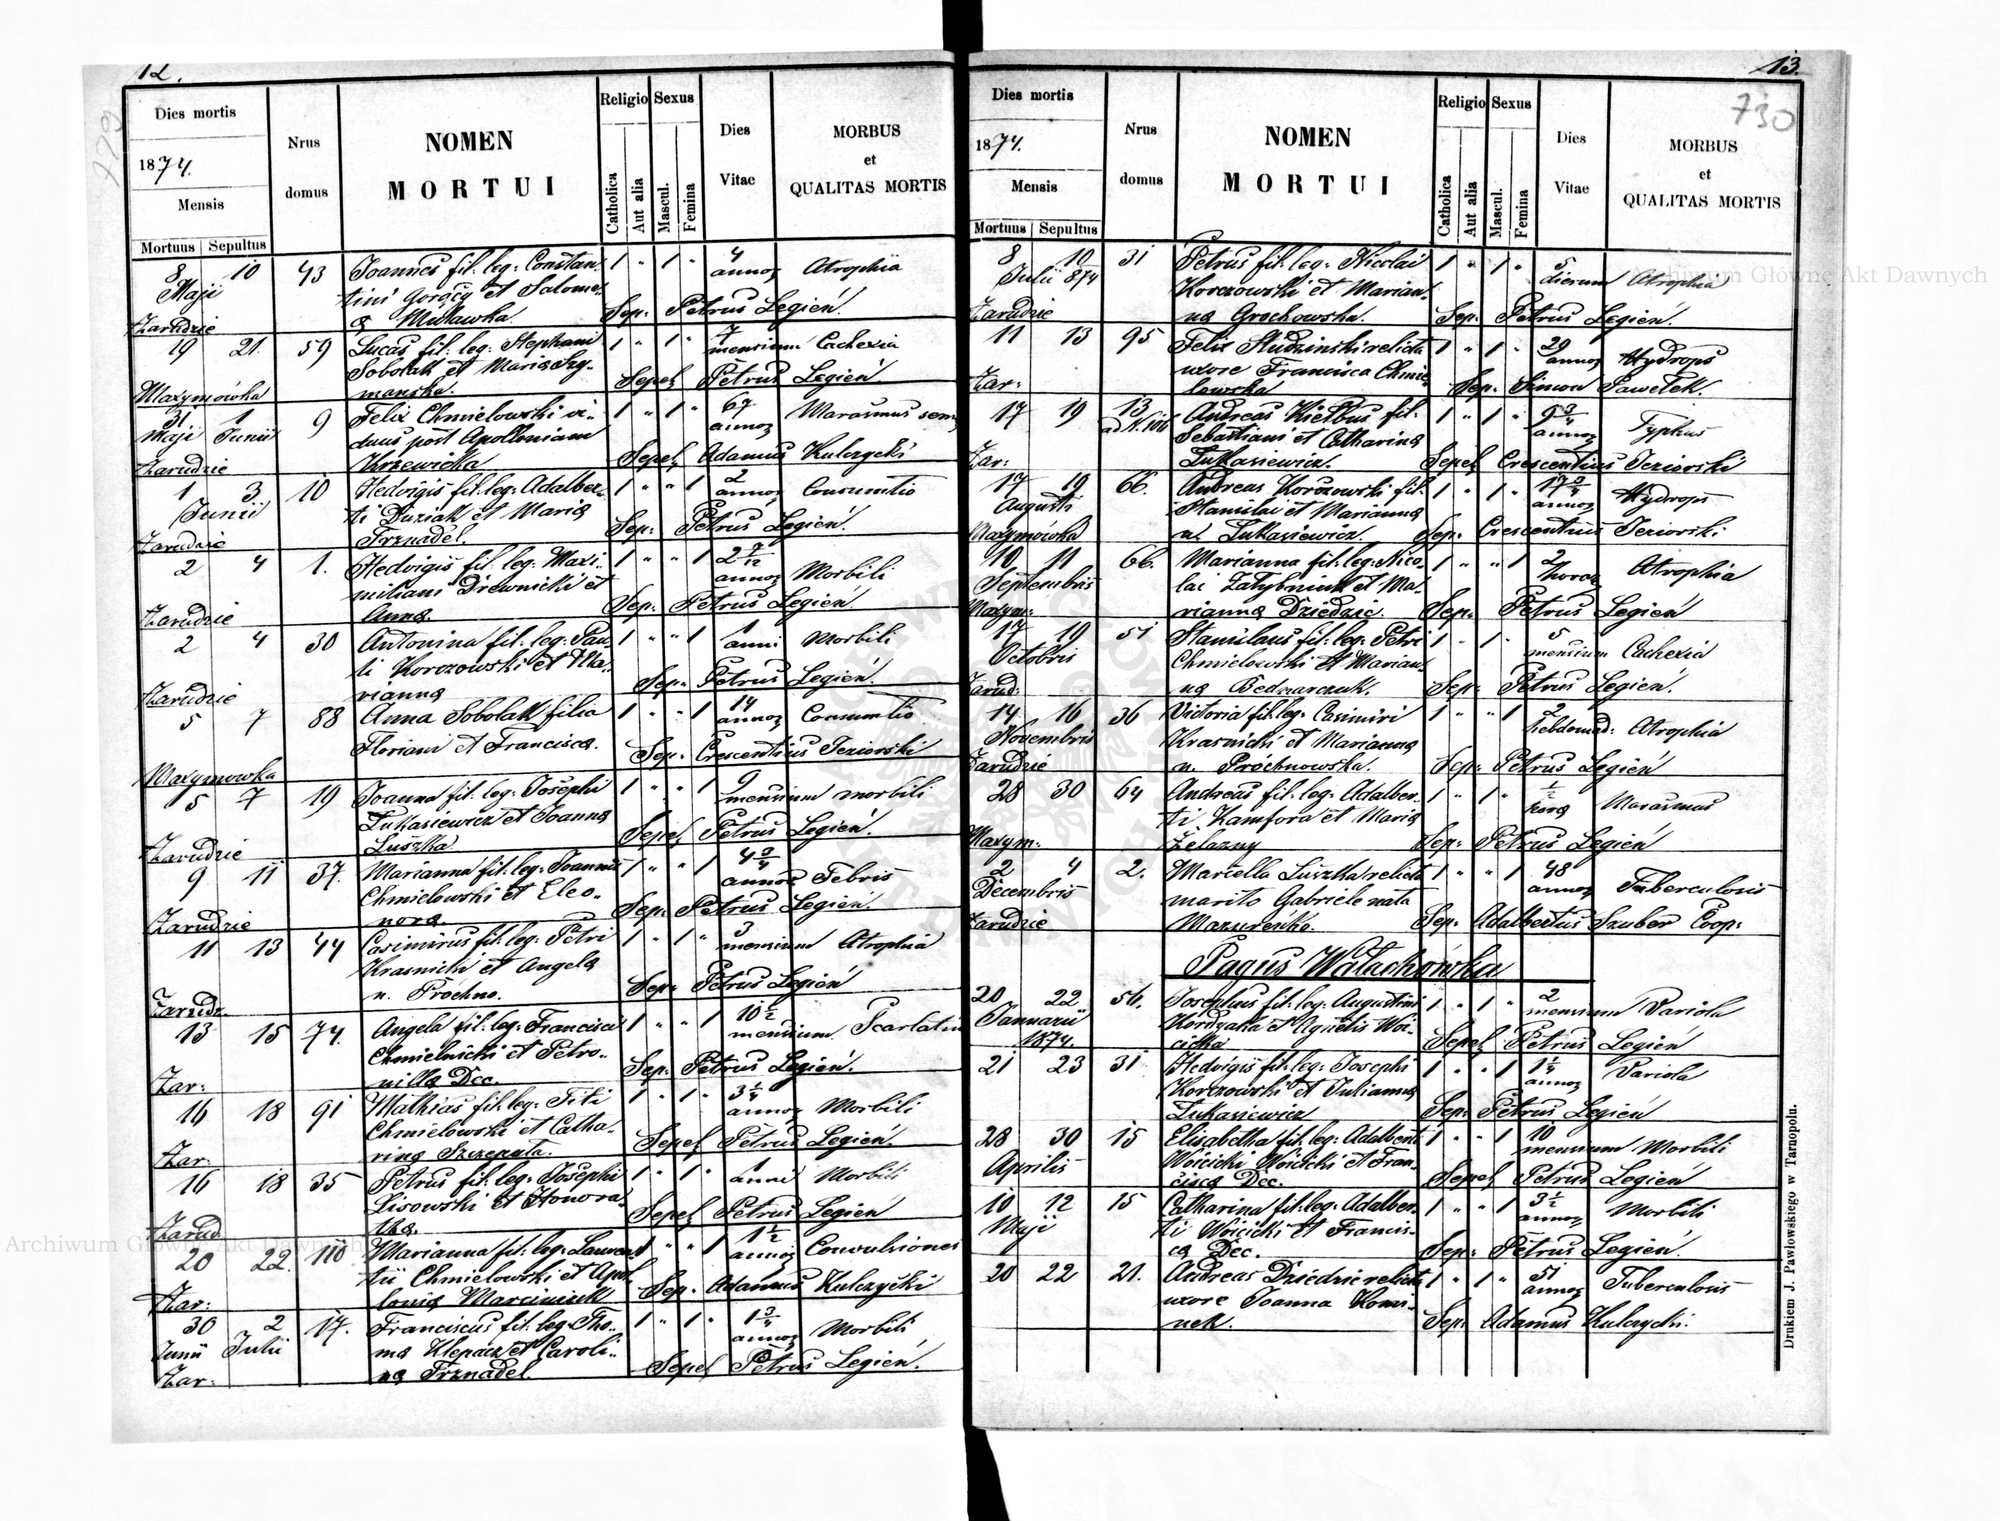 12.
Dies mortis
1874.
Mensis
Mortuus Sepultus
Nrus
domus
NOMEN
MORTUI
Religio
Catholica
Aut alia
Sexus
Mascul.
Femina
Dies
Vitae
MORBUS
et
QUALITAS MORTIS
8 10 43 Joannes fil: leg: Constan- 1 " 1 " 4
Maji tini Gorący et Salome- annor Atrophia
Zarudzie a Muławka. Sep: Petrus Legień.
19 21. 59 Lucas fil: leg: Stephani 1 " 1 " 7
Sobolak et Maria Szy- mensium Cachexia
Maxymówka manska. Sepel Petrus Legień
31 1 9 Felix Chmielowski vi- 1 " 1 " 67
Maji Junii duus post Apolloniam annor Marasmus sen:
Zarudzie Krzewicka Sepel Adamus Kulczycki
1 3 10 Hedvigis fil: leg: Adalber- 1 " " 1 2
Junii ti Duziak et Maria annor Consumtio
Zarudzie Trznadel. Sep: Petrus Legień.
2 4 1. Hedvigis fil: leg: Maxi- 1 " " 1
miliani Drewnicki et annor Morbili
Zarudzie Anna. Sep: Petrus Legień.
2 4 30 Antonina fil: leg: Pau- 1 " " 1 1
li Korczowski et Ma- anni Morbili
Zarudzie rianna Sep: Petrus Legień.
5 7 88 Anna Sobolak filia 1 " " 1 14
Floriani et Francisca. annor Consumtio
Maxymowka Sep: Crescentius Jeziorski
5 7 19 Joanna fil: leg: Josephi 1 " " 1 9
Łukasiewicz et Joanna mensium morbili
Zarudzie Łuszka Sepel Petrus Legień.
9 11 37. Marianna fil: leg: Joannis 1 " " 1 4 3/4
Chmielowski et Eleo- annor Febris
Zarudzie nora. Sep: Petrus Legień.
11 13 44 Casimirus fil: leg: Petri 1 " 1 " 3
Krasnicki et Angela mensium Atrophia
Zarudz. n. Prochno. Sep: Petrus Legień
13 15 74. Angela fil: leg: Francisci 1 " " 1 10 1/2
Chmielnicki et Petro- mensium Scarlatin
Zar: nilla Dec. Sep: Petrus Legień.
16 18 91 Mathias fil: leg: Titi 1 " 1 " 3 1/4
Chmielowski et Catha- annor Morbili
Zar: rina Szczepata. Sepel Petrus Legień.
16 18 35 Petrus fil: leg: Josephi 1 " 1 " 1
Lisowski et Honora- anni Morbili
Zarud. tha. Sepel Petrus Legień
20 22. 110 Marianna fil: leg: Lauren- 1 " " 1 1 1/2
tii Chmielowski et Apol- anni Convulsiones
Zar: lonia Marciniuk Sep. Adamus Kulczycki
30 2 17. Franciscus fil: leg: Tho- 1 " 1 " 1 3/4
Junii Julii ma Klepacz et Caroli- annor Morbili
Zar: na Trznadel. Sepel Petrus Legień.
13.
730
Dies mortis
1874.
Mensis
Mortuus Sepultus
Nrus
domus
NOMEN
MORTUI
Religio
Catholica
Aut alia
Sexus
Mascul.
Femina
Dies
Vitae
MORBUS
et
QUALITAS MORTIS
8 10 31 Petrus fil: leg: Nicolai 1 " 1 " 5
Julii 874 Korczowski et Marian- dierum Atrophia
Zarudzie na Grochowska. Sep: Petrus Legień.
11 13 95 Felix Studzinski relicta 1 " 1 " 29
uxore Francisca Chmie- annor Hydrops
Zar: lowska Sep: Simon Pawełek.
17 19 13 Andreas Kiełbus fil: 1 " 1 " 9 3/4
ad N. 106 Sebastiani et Catharina annor Typhus
Zar: Łukasiewicz. Sepel Crescentius Jeziorski
17 19 66. Andreas Korczowski fil: 1 " 1 " 17 3/4
Augusti Stanislai et Marianna annor Hydrops
Maxymówka n. Łukasiewicz. Sep: Crescentius Jeziorski
10 11 66. Marianna fil: leg: Nico- 1 " " 1 2
Septembris lai Załybniuk et Ma- horar Atrophia
Maxym: rianna Dziedzic. Sep: Petrus Legień
17 19 51 Stanislaus fil: leg: Petri 1 " 1 " 5
Octobris Chmielowski et Marian- mensium Cachexia
Zarud: na Bednarczuk. Sep: Petrus Legień.
14 16 36 Victoria fil: leg: Casimiri 1 " " 1 2
Novembris Krasnicki et Marianna hebdomad: Atrophia
Zarudzie n. Prochnowska. Sep: Petrus Legień
28 30 64 Andreas fil: leg: Adalber- 1 " 1 " 1/2
ti Kamfora et Maria hora Marasmus
Maxym: Żelazny Sep: Petrus Legień
2 4 2. Mariella Łuszka relicta 1 " " 1 48
Decembris marito Gabriele nata annor Tuberculosis
Zarudzie Mazureńko. Sep: Adalbertus Szuber Coop:
Pagus Wałachówka
20 22 56. Josephus fil: leg: Augustini 1 " 1 " 2
Januarii Kordyaka et Agnetis Woi- mensium Variola
1874 cicka Sepel Petrus Legień
21 23 31 Hedvigis fil: leg: Josephi 1 " " 1
Korczowski et Julianna annor Variola
Łukasiewicz Sep: Petrus Legień
28 30 15 Elisabetha fil: leg: Adalberti 1 " " 1 10
Aprilis Woicicki Woicicki et Fran- mensium Morbili
cisca Dec. Sepel Petrus Legień
10 12 15 Catharina fil: leg: Adalber- 1 " " 1 3 1/2
Maji ti Woicicki et Francis- annor Morbili
ca Dec. Sep: Petrus Legień.
20 22 21. Andreas Dziedzic relicta 1 " 1 " 51
uxore Joanna Komi- annor Tuberculosis
nek. Sep: Adamus Kulczycki.
Drukiem J. Pawłowskiego w Tarnopolu.
Archiwum Główne Akt Dawnych
Archiwum Główne Akt Dawnych